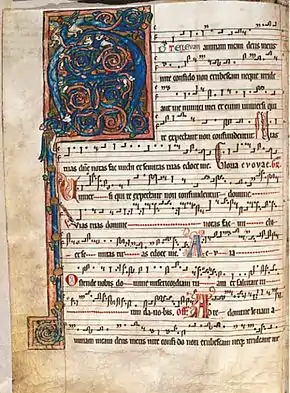 TE LEVAVI animam meam deus meus
in te confido non erubescam neque irride
ant me inimici mei et enim uniuersi qui
te expectant non confundentur Uias
tuas dne notas fac michi et semitas tuas edoce me. Gloria euouae. GR
Uniuer si qui te expectant non confundentur domine
Uias tuas domine notas fac
et se mitas tu as edoce me. A e u ia
Ostende nobis domine misericordiam tu am et salutare tu
um da nobis. Off. Ad te domine leuaui a
nimam meam deus meus in te confido non erubescam neque irrideant me